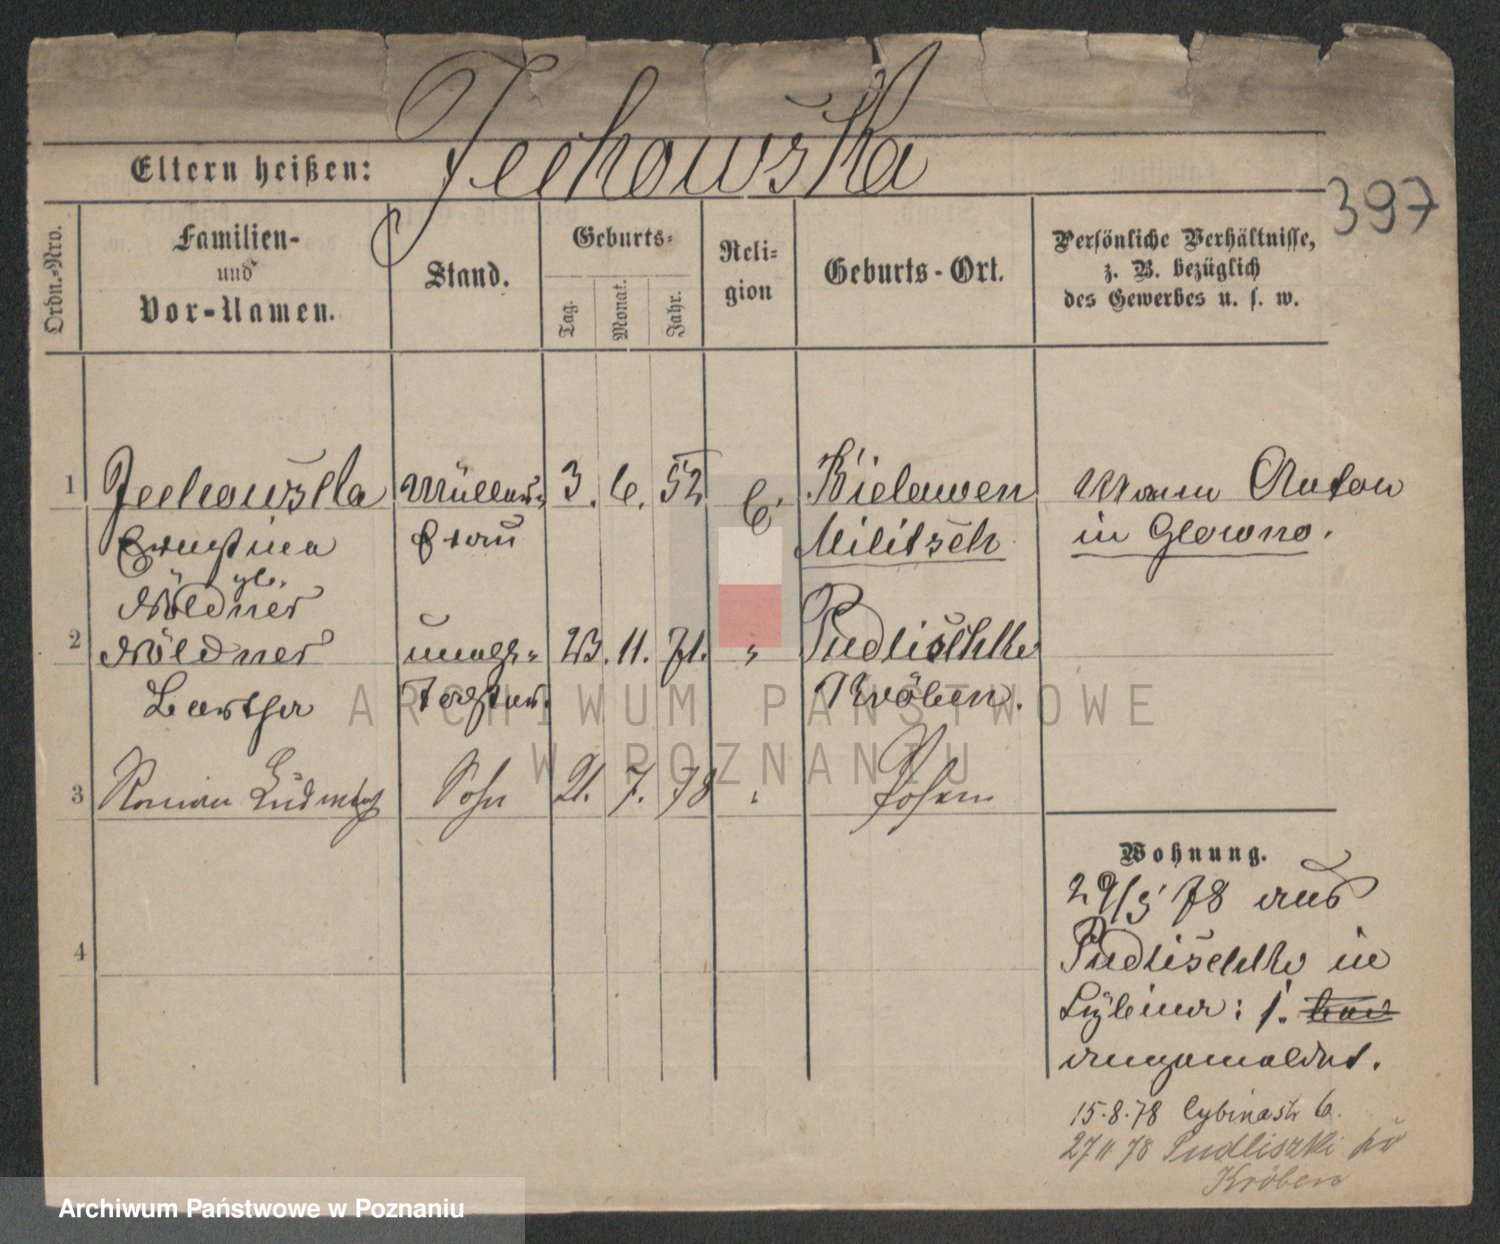 Jechowska
Eltern heißen:
397
Ordn.-Nro.
Familien-
und
Vor-Namen.
Stand.
Geburts-
Tag.
Monat.
Jahr.
Reli-
gion
Geburts-Ort.
Persönliche Verhältnisse,
z. B. bezüglich
des Gewerbes u. s. w.
1 Jechowska Müller- 3. 6. 52 Bielawen Mann Anton
Ernstina frau Militsch in Glowno.
Nöldner
2 Nöldner unehe- 23. 11. 71. " Pudlischke
Bertha Tochter Kröben.
3 Roman Ludwig Sohn 21. 7. 78 " Posen
4
Wohnung.
29/5 78 aus
Pudlischke in
1.
angemeldet.
15.8.78 Cybinastr 6.
27 11 78 Pudliszki
Kröben
ARCHIWUM PAŃSTWOWE
W POZNANIU
Archiwum Państwowe w Poznaniu